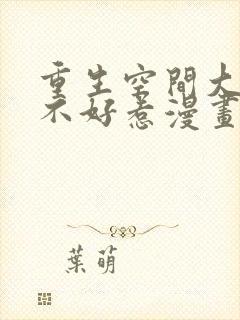 重生空間大
不好惹漫畫
葉萌